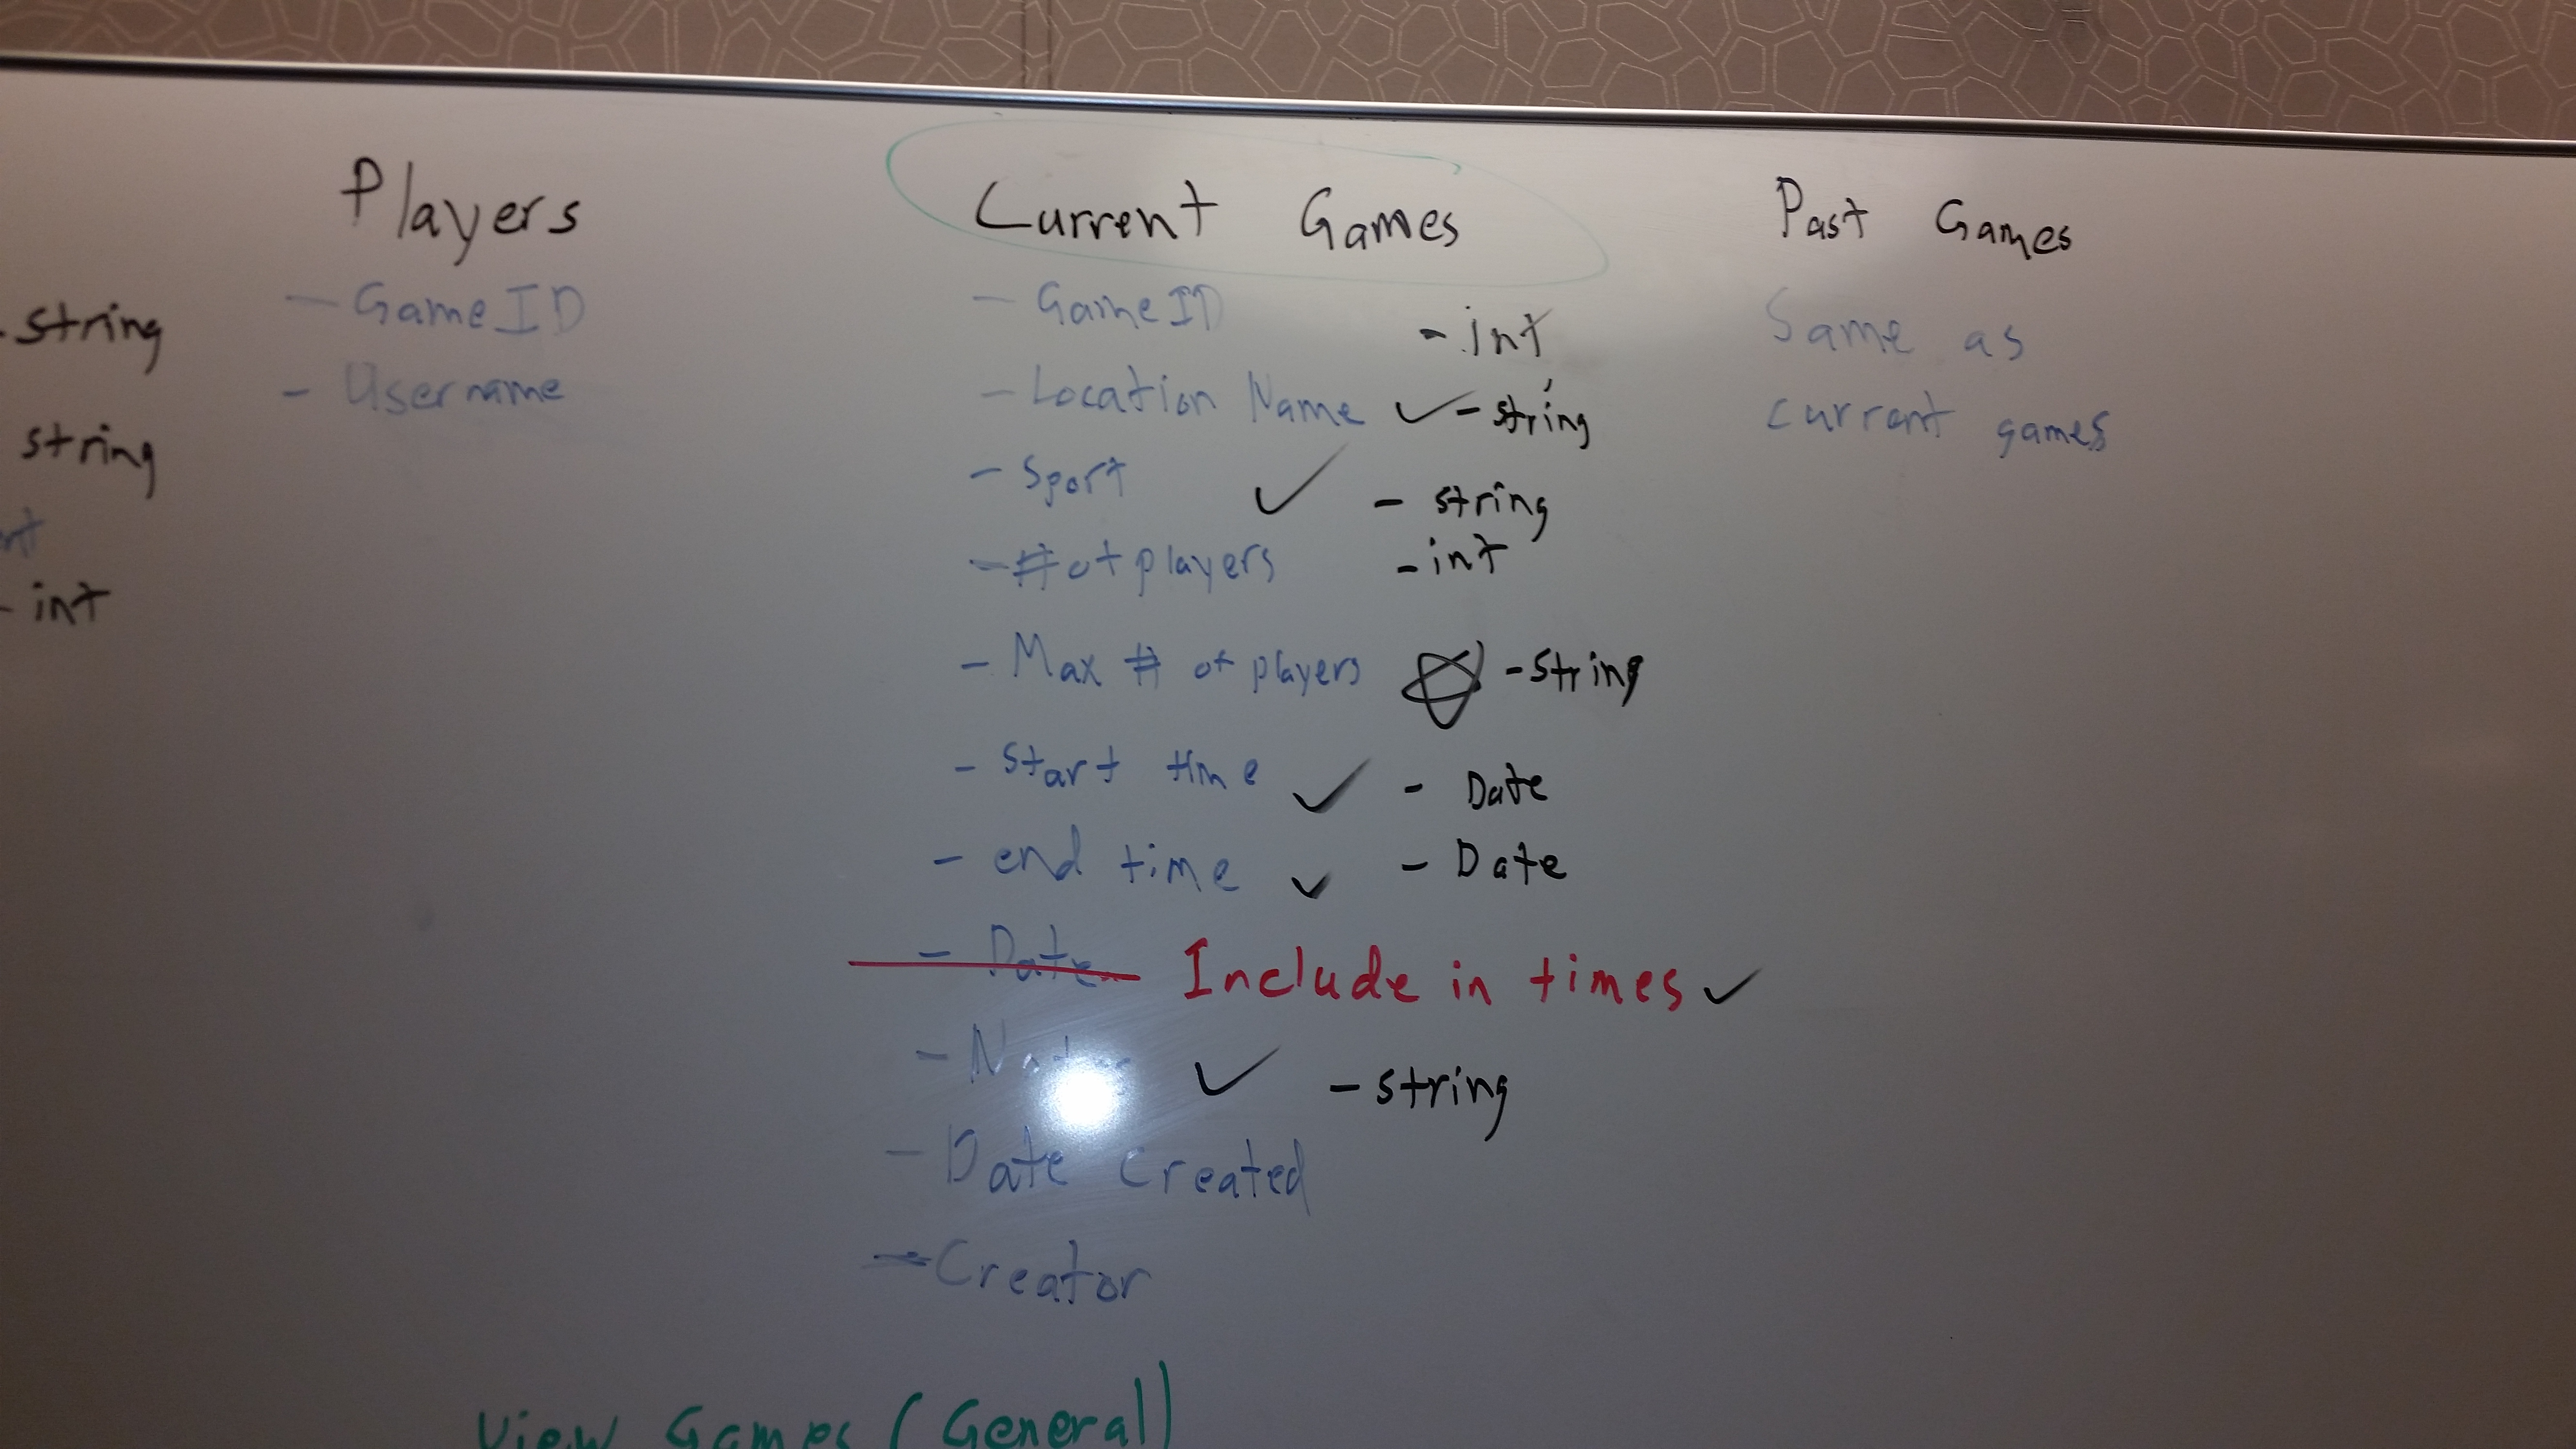 Players
- GameID
- Username
- string
string
- int
Current Games
- GameID - int
- Location Name ✓ - string
- Sport ✓ - string
- # of players - int
- Max # of players - string
- Start time ✓ - Date
- end time ✓ - Date
- Date Include in times ✓
- ✓ - string
- Date Created
- Creator
Past Games
Same as
current games
View Games (General)